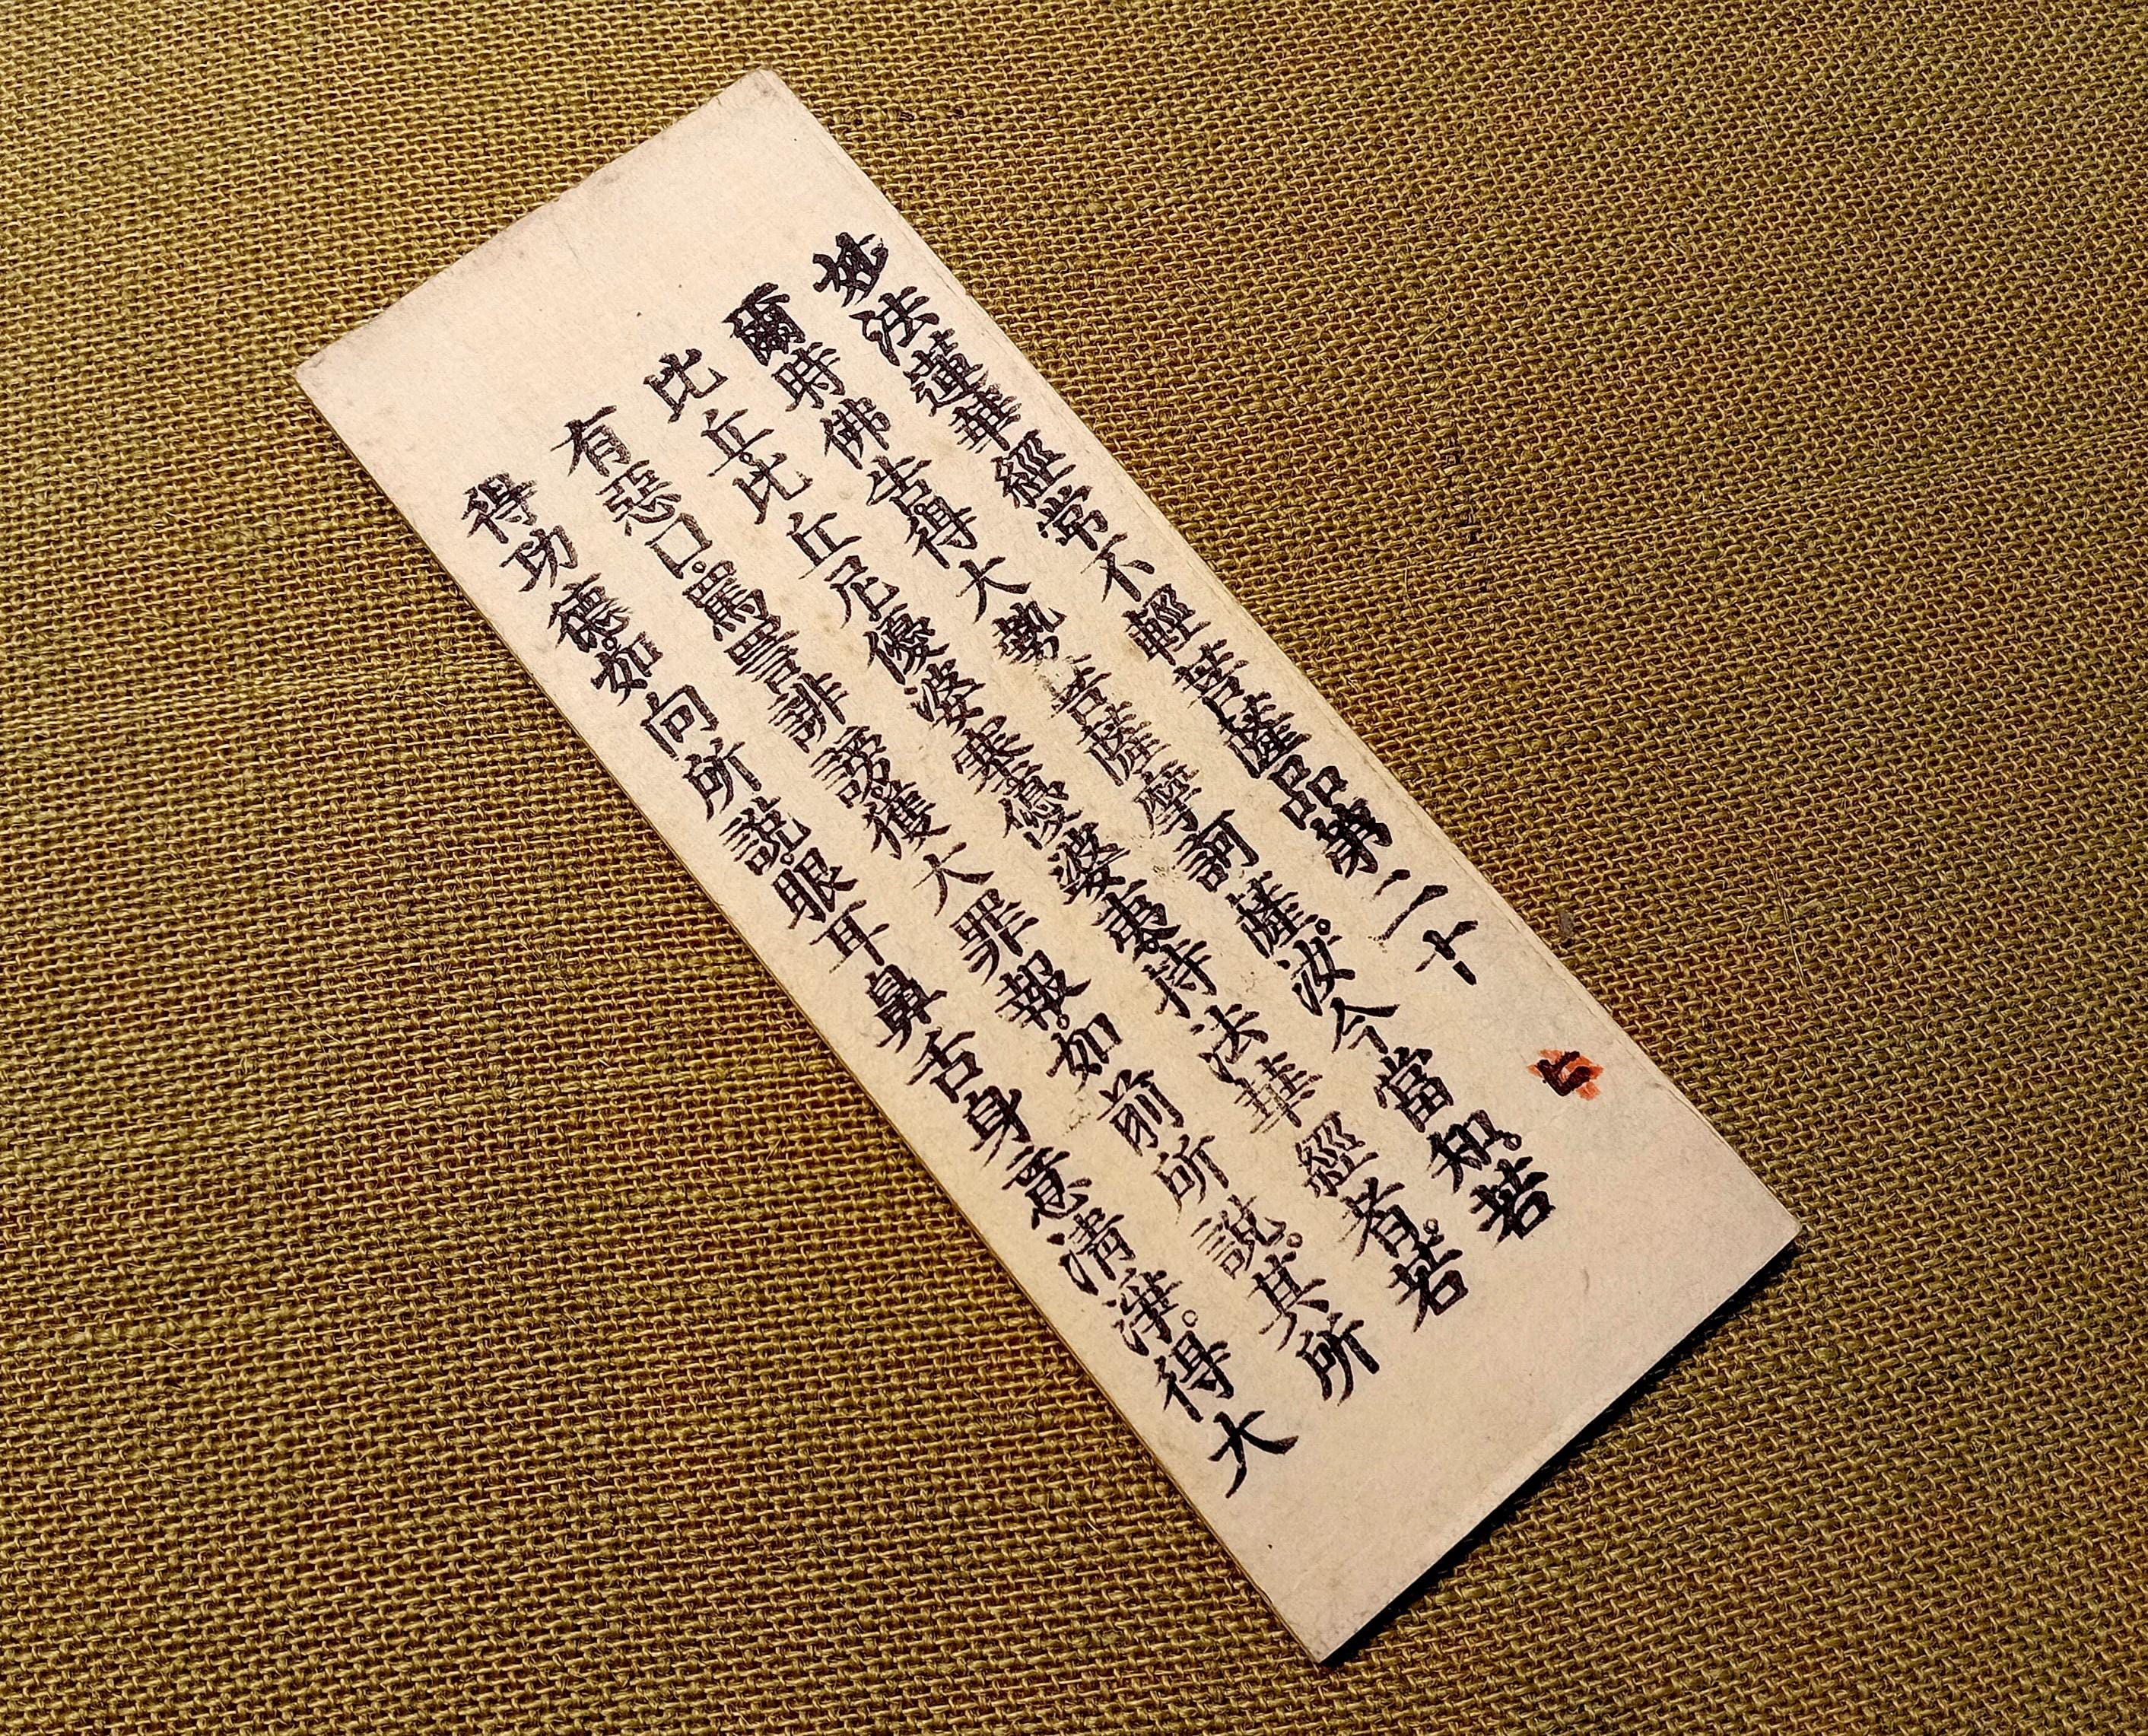 妙法蓮華經常不輕菩薩品第二十
爾時佛告得大勢菩薩摩訶薩。汝今當知。若
比丘。比丘尼優婆塞優婆夷。持法華經者。若
有惡口。罵詈誹謗。獲大罪報。如前所說。其所
得功德。如向所說。眼耳鼻舌身意清淨。得大